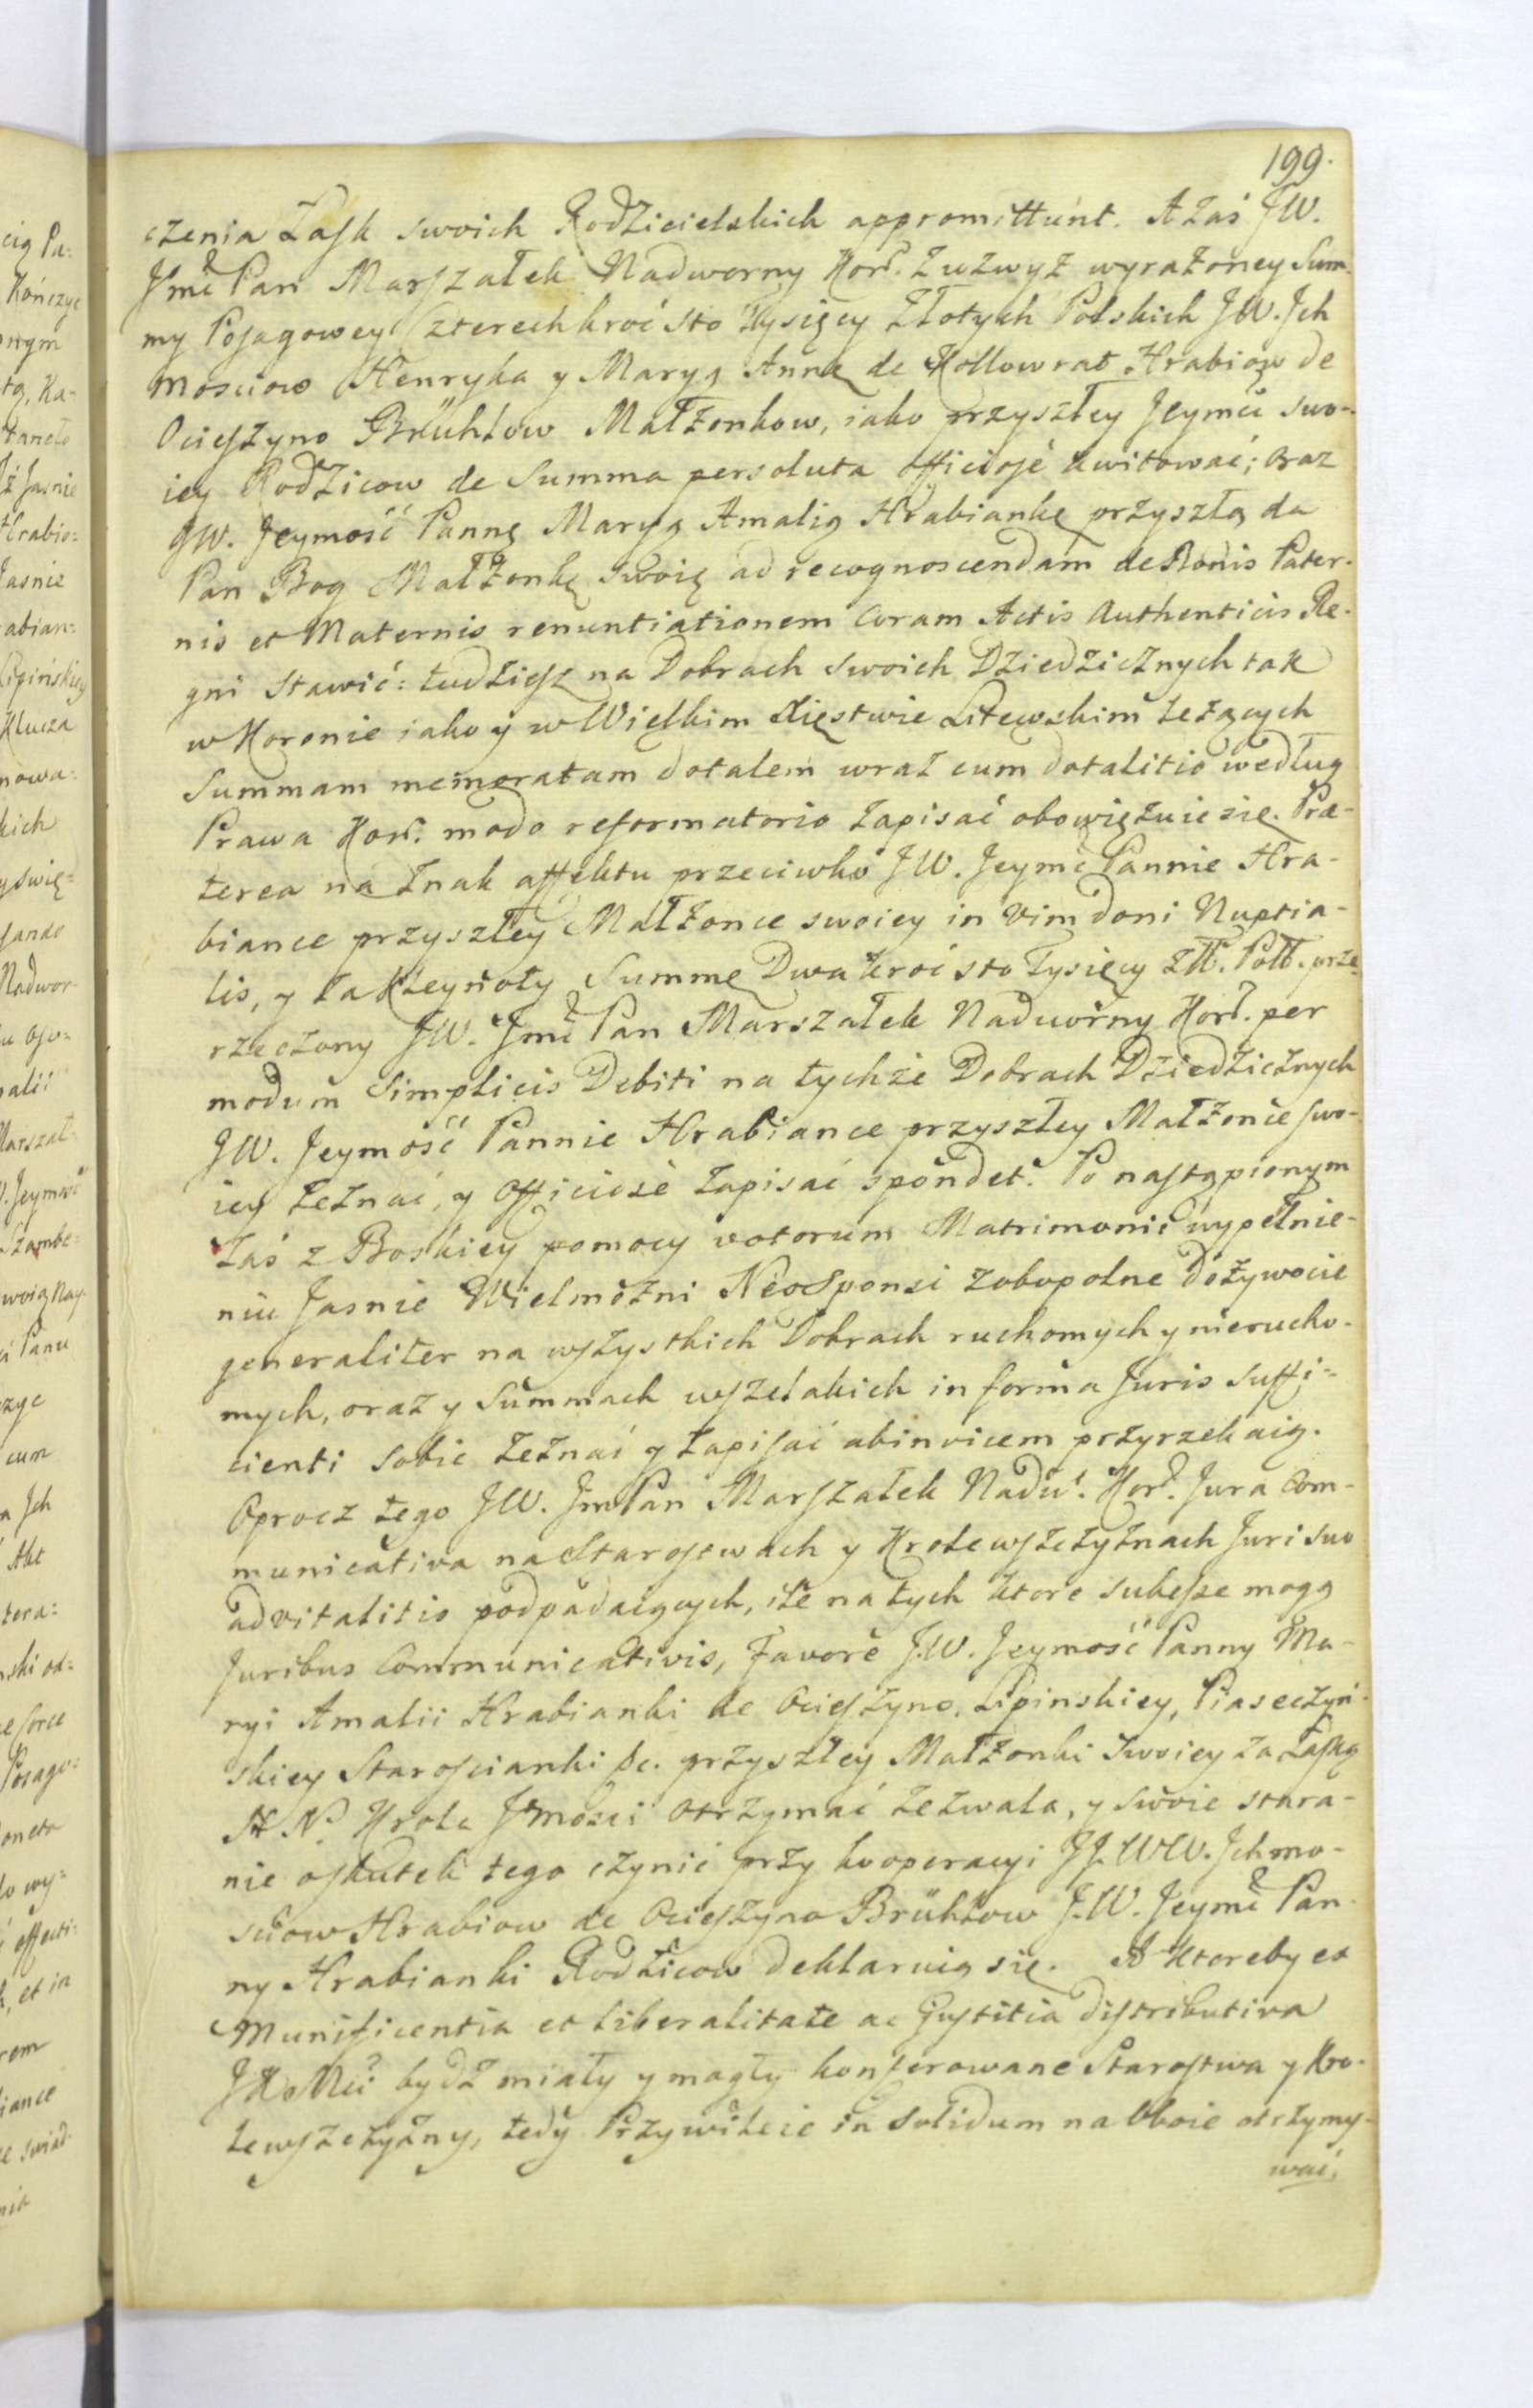 199.
czenia Łask swoich Rodzicielskich appromittunt. A zaś JW.
Jmć Pan Marszałek Nadworny Kor. z wzwyż wyrażoney Sum-
my Posagowey czterechkroć sto Tysięcy Złotych Polskich JW. Ich
Mosciow Henryka y Maryą Annę de Kollowrat Hrabiow de
Ocieszyno Brühlow Małżonkow, iako przyszłey Jeymći swo-
iey Rodzicow de Summa persoluta officiosè kwitować; oraz
JW. Jeymość Pannę Maryą Amalią Hrabiankę przyszłą da
Pan Bog Małżonkę swoię ad recognoscendam de Bonis Pater-
nis et Maternis renuntiationem Coram Actis Authenticis Re-
gni stawić: tudziesz na Dobrach swoich Dziedzicznych tak
w Koronie iako y w Wielkim Xięstwie Litewskim leżących
Summam memoratam dotalem wraz cum dotalitio według
Prawa Kor. modo reformatorio zapisać obowięzuie się. Præ-
terea na znak affektu przeciwko JW. Jeymć Pannie Hra-
biance przyszłey Małżonce swoiey in vim doni Nuptia-
lis, y za Kleynoty Summę Dwakroć sto Tysięcy Zł. Pol. prze
rzeczony JW. Jmć Pan Marszałek Nadworny Kor. per
modum Simplicis Debiti na tychże Dobrach Dziedzicznych
JW. Jeymość Pannie Hrabiance przyszłey Małżonce swo-
iey zeznać, y officiosè zapisać spondet. Po nastąpionym
zaś z Boskiey pomocy votorum Matrimonii wypełnie-
niu Jasnie Wielmożni Neosponsi zobopolne dożywocie
generaliter na wszystkich Dobrach ruchomych y nierucho-
mych, oraz y Summach wszelakich in forma Juris suffi-
cienti sobie zeznać y zapisać abinvicem przyrzekaią.
Oprocz tego JW. Jm Pan Marszałek Nadw. Kor. Jura Com-
municativa na Starostwach y Krolewszczyznach Juri suo
advitalitio podpadaiących, ile na tych ktore subesse mogą
Juribus Communicativis, Favore J.W. Jeymość Panny Ma-
ryi Amalii Hrabianki de Ocieszyno, Lipinskiey, Piaseczyń-
skiey Starościanki &c. przyszłey Małżonki swoiey za Łaską
N. Krola Jmości otrzymać zezwala, y swoie stara-
nie o skutek tego czynić przy kooperacyi JJ. WW. Ichmo-
sciow Hrabiow de Ocieszyno Brühlow J.W. Jeymć Pan-
ny Hrabianki Rodzicow deklaruią się. A ktoreby ex
Munificentia et liberalitate ac Justitia distributiva
JKMci bydź miały y mogły konferowane Starostwa y Kro-
lewszczyzny, tedy Przywileie in Solidum na Oboie otrzymy-
wać,